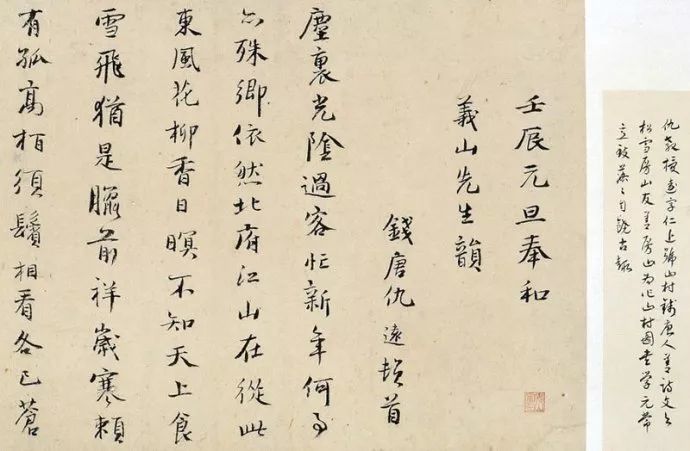 仇教授遠字仁近號山村錢唐人善詩文與
松雪房山友善房山為作山村圖書學元常
立致蕭蕭自饒古趣
壬辰元旦奉和
義山先生韻
錢唐仇遠頓首
塵裏光陰過客忙新年何事
亦殊鄉依然北府江山在從此
東風花柳香日暝不知天上食
雪飛猶是臘前祥歲寒賴
有孤高柏須鬢相看各已蒼